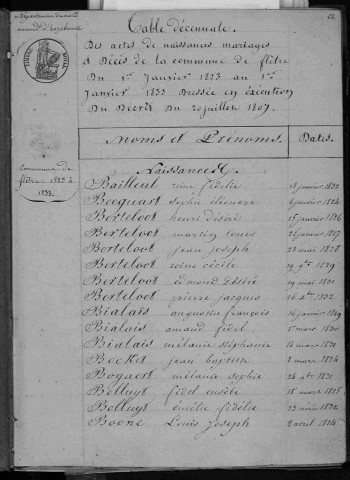 Département du nord
arrond. d'hazebrouck
Table décennale.
Des actes de naissances mariages
& Décès de la commune de flêtre
Du 1er Janvier 1823 au 1er
Janvier 1833 Dressée en éxécution
Du Décret Du 20 juillet 1807.
Noms et Prénoms. Dates.
Commune de
flêtre 1823 à
1833.
Naissances
Bailleul reine fidélie janvier 1823
Becquart sophie éléonore 6 janvier 1824
Berteloot henri désiré 15 janvier 1826
Berteloot martin louis 22 janvier 1827
Berteloot jean joseph 23 mai 1828
Berteloot reine cécile 19 9bre 1829
Berteloot edmond désiré 19 mai 1831
Berteloot pierre jacques 16 Xbre 1832
Bialais augustin françois 16 janvier 1829
Bialais amand fidel 5 mars 1830
Bialais mélanie stéphanie 14 mars 1831
Bockit jean baptiste 2 mars 1824
Bogaert mélanie sophie 24 9bre 1831
Belluyt fidel 15 mars 1825
Belluyt émilie fidélie 23 avril 1832
Boone Louis Joseph 2 avril 1824